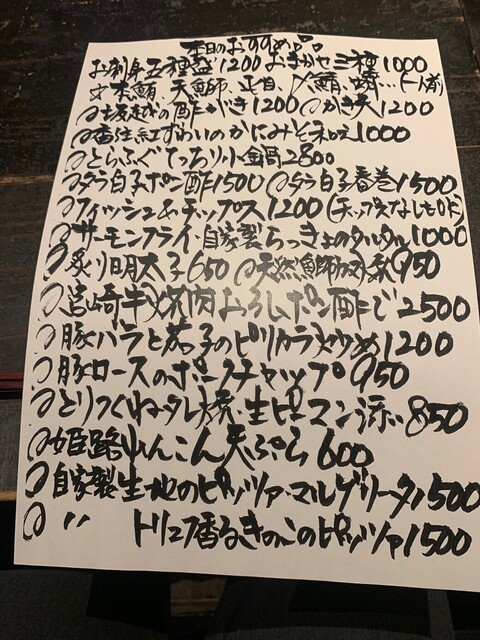 本日のおすすめ品
お刺身五種盛1200 おまかせ三種1000
本鮪、天鰤、〆鯖、(一人前)
坂越の酢がき1200 ◎かき天1200
香住紅ずわいのかにみそ和え1000
とらふぐてっちり小鍋2800
タラ白子ポン酢1500 ◎タラ白子春巻1500
フィッシュ&チップス1200(チップスなしもOK)
サーモンフライ・自家製らっきょのタルタル1000
炙り明太子650 ◎天然鰤カマ焼950
宮崎牛焼肉おろしポン酢で2500
豚バラと茄子のピリカラ炒め1200
豚ロースのポークチャップ950
とりつくね・タレ焼・生ピーマン添え850
姫路れんこん天ぷら600
自家製生地のピッツァ・マルゲリータ1500
〃 トリュフ香るきのこのピッツァ1500